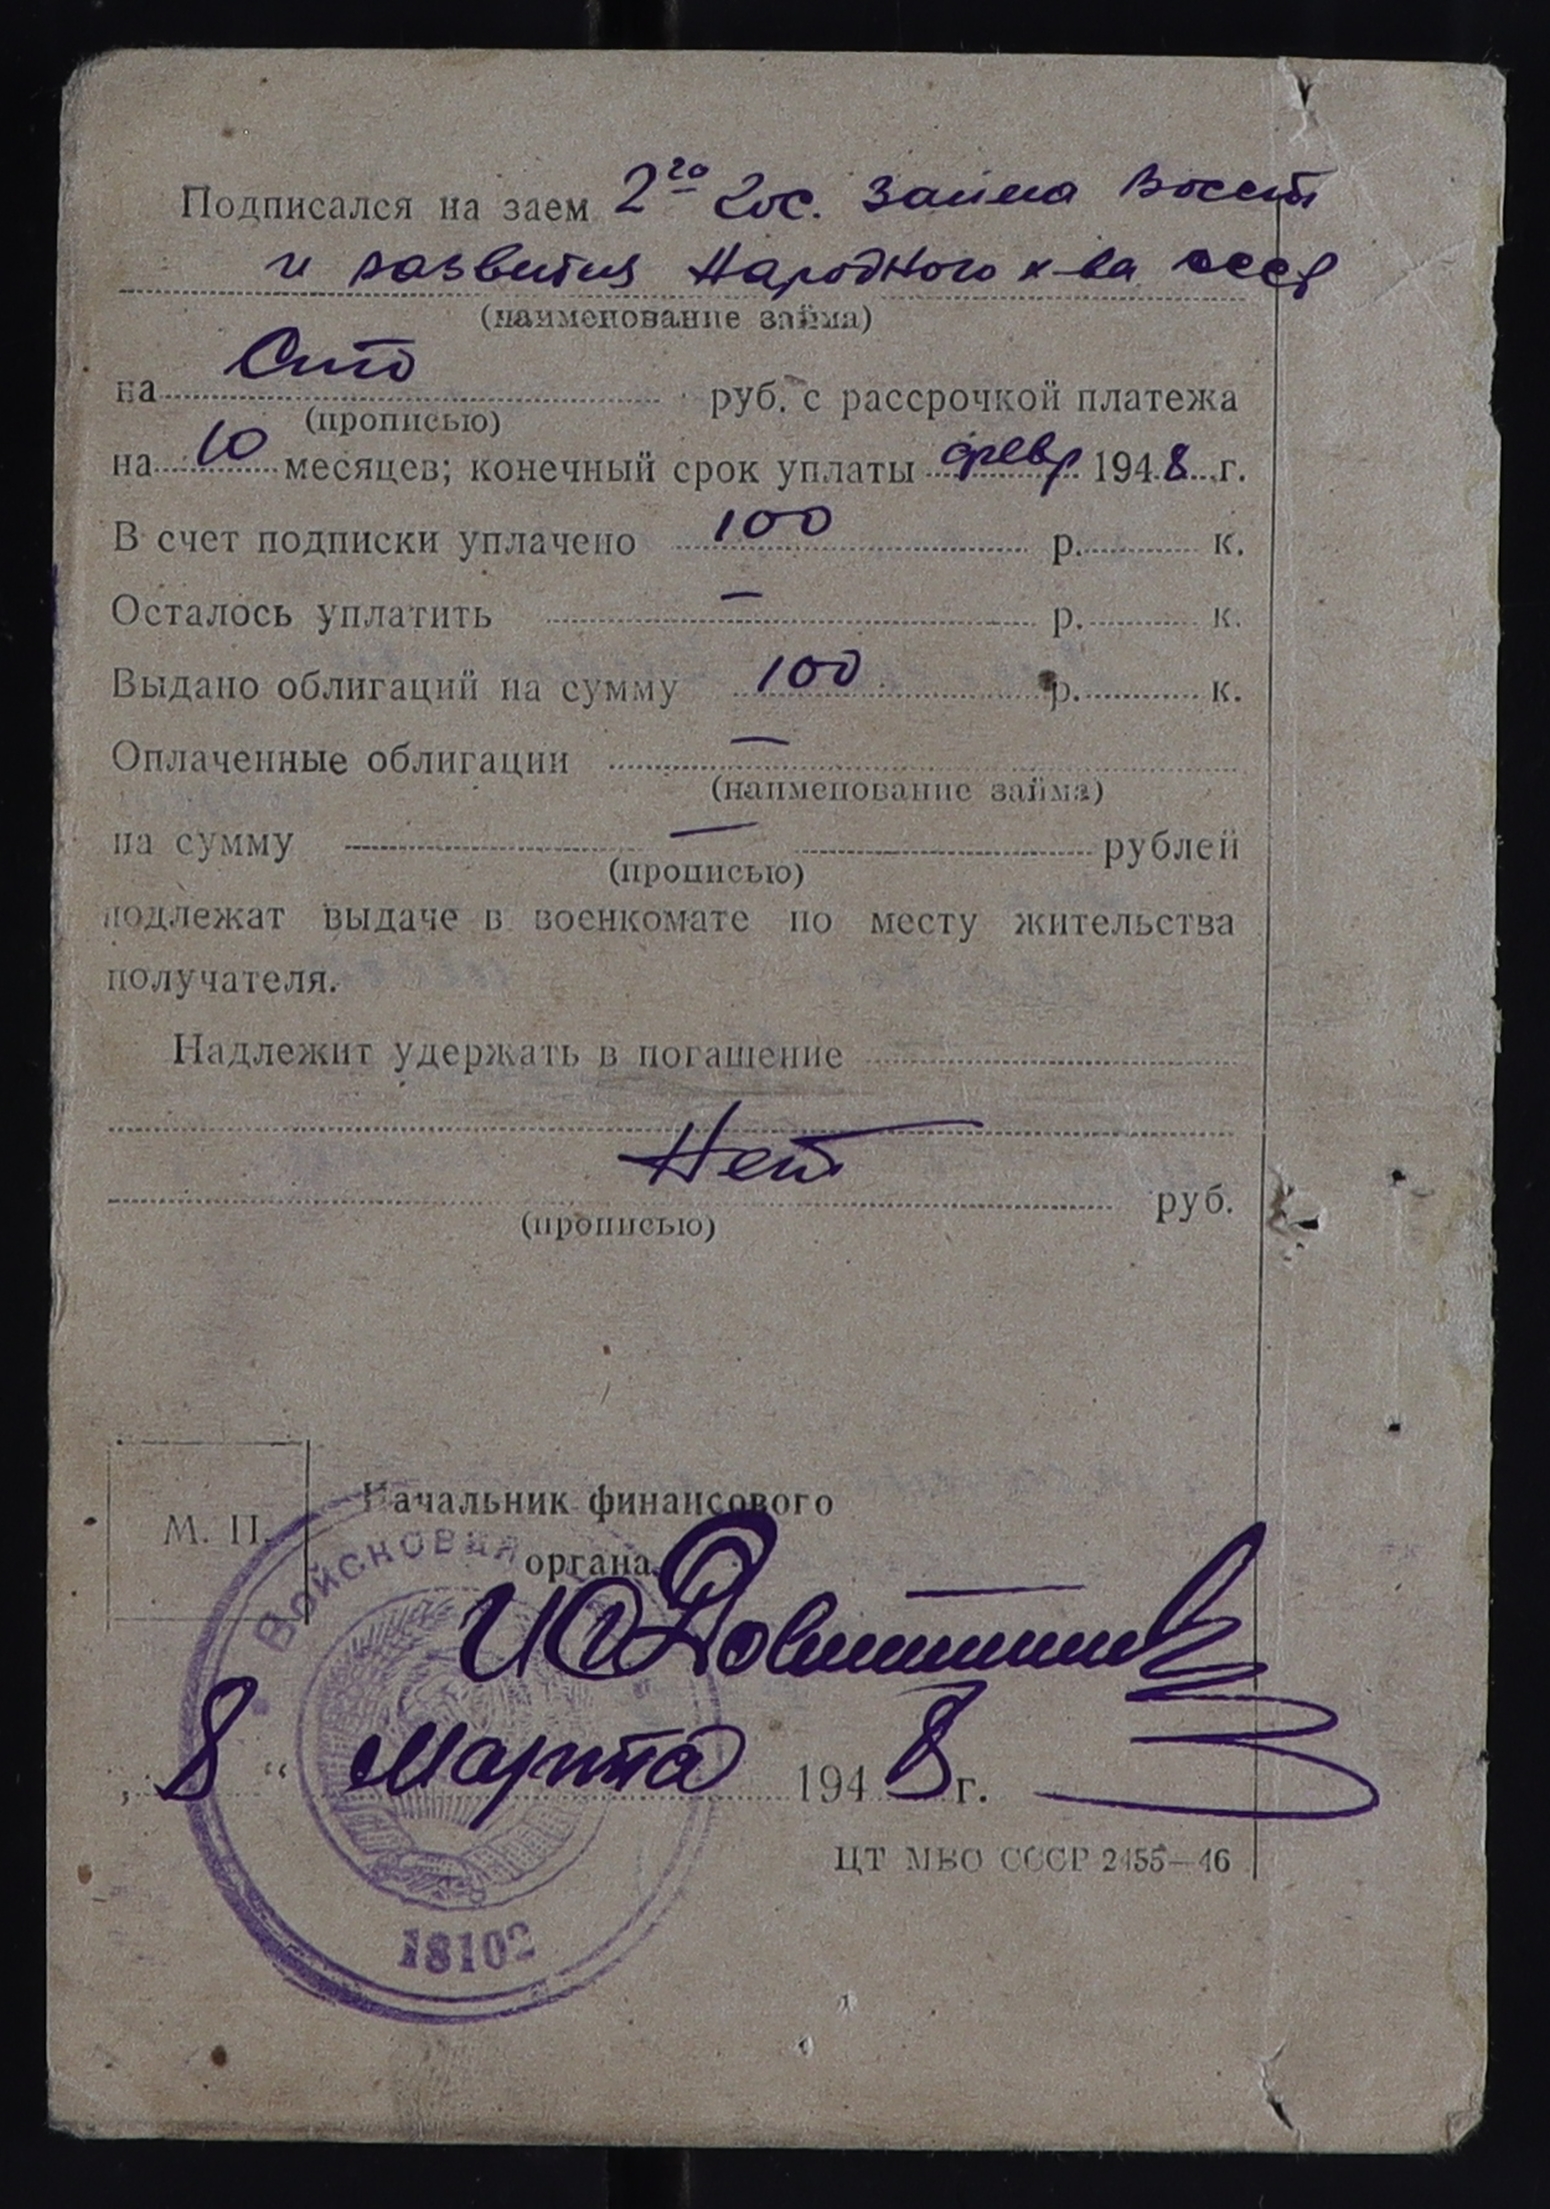 Подписался на заем 2го Гос. Займа Восст
и развития Народного х-ва СССР
(наименование займа)
на Сто руб. с рассрочкой платежа
(прописью)
на 10 месяцев; конечный срок уплаты февр 1948 г.
В счет подписки уплачено 100 р. к.
Осталось уплатить — р. к.
Выдано облигаций на сумму 100 р. к.
Оплаченные облигации —
(наименование займа)
на сумму — рублей
(прописью)
подлежат выдаче в военкомате по месту жительства
получателя.
Надлежит удержать в погашение
Нет
руб.
(прописью)
М. П.
Начальник финансового
органа
Войсковая
„8“ Марта 1948 г.
ЦТ МВО СССР 2455—46
18102